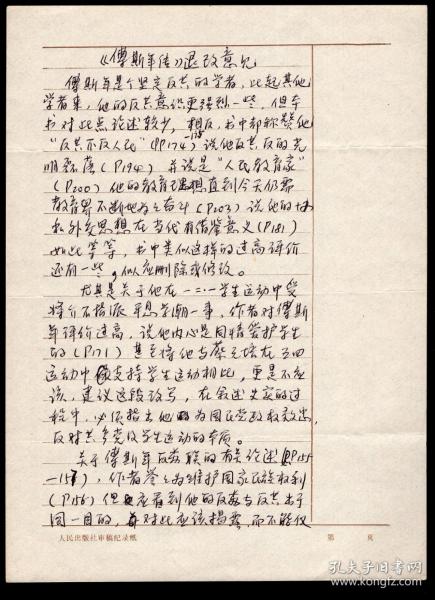 《傅斯年传》退改意见
傅斯年是个坚定反共的学者，比起其他
学者来，他的反共意识更强烈一些，但本
书对此点论述较少，相反，书中却称赞他
“反共不反人民”（PP174-175）说他反共反的光
明磊落（P194）并说是“人民教育家”
（P200）他的教育理想直到今天仍需
教育界不断地为之奋斗（P203）说他的
外交思想在当代有借鉴意义（P181）
如此等等，书中类似这样的过高评价
还有一些，似应删除或修改。
尤其是关于他在一二·一学生运动中受
蒋介石指派平息学潮一事，作者对傅斯
年评价过高，说他内心是同情爱护学生
的（P171）甚至将他与蔡元培在五四
运动中支持学生运动相比，更是不应
该，建议这段改写，在叙述史实的过
程中，必须指出他为国民党政权效忠，
反对共产党及学生运动的本质。
关于傅斯年反苏联的有关论述（P155
-157），作者誉之为维护国家民族权利
（P156）但应看到他的反苏与反共出于
同一目的，对此应该揭露，而不能仅
人民出版社审稿纪录纸
第 页
孔夫子旧书网
www.kongfz.com